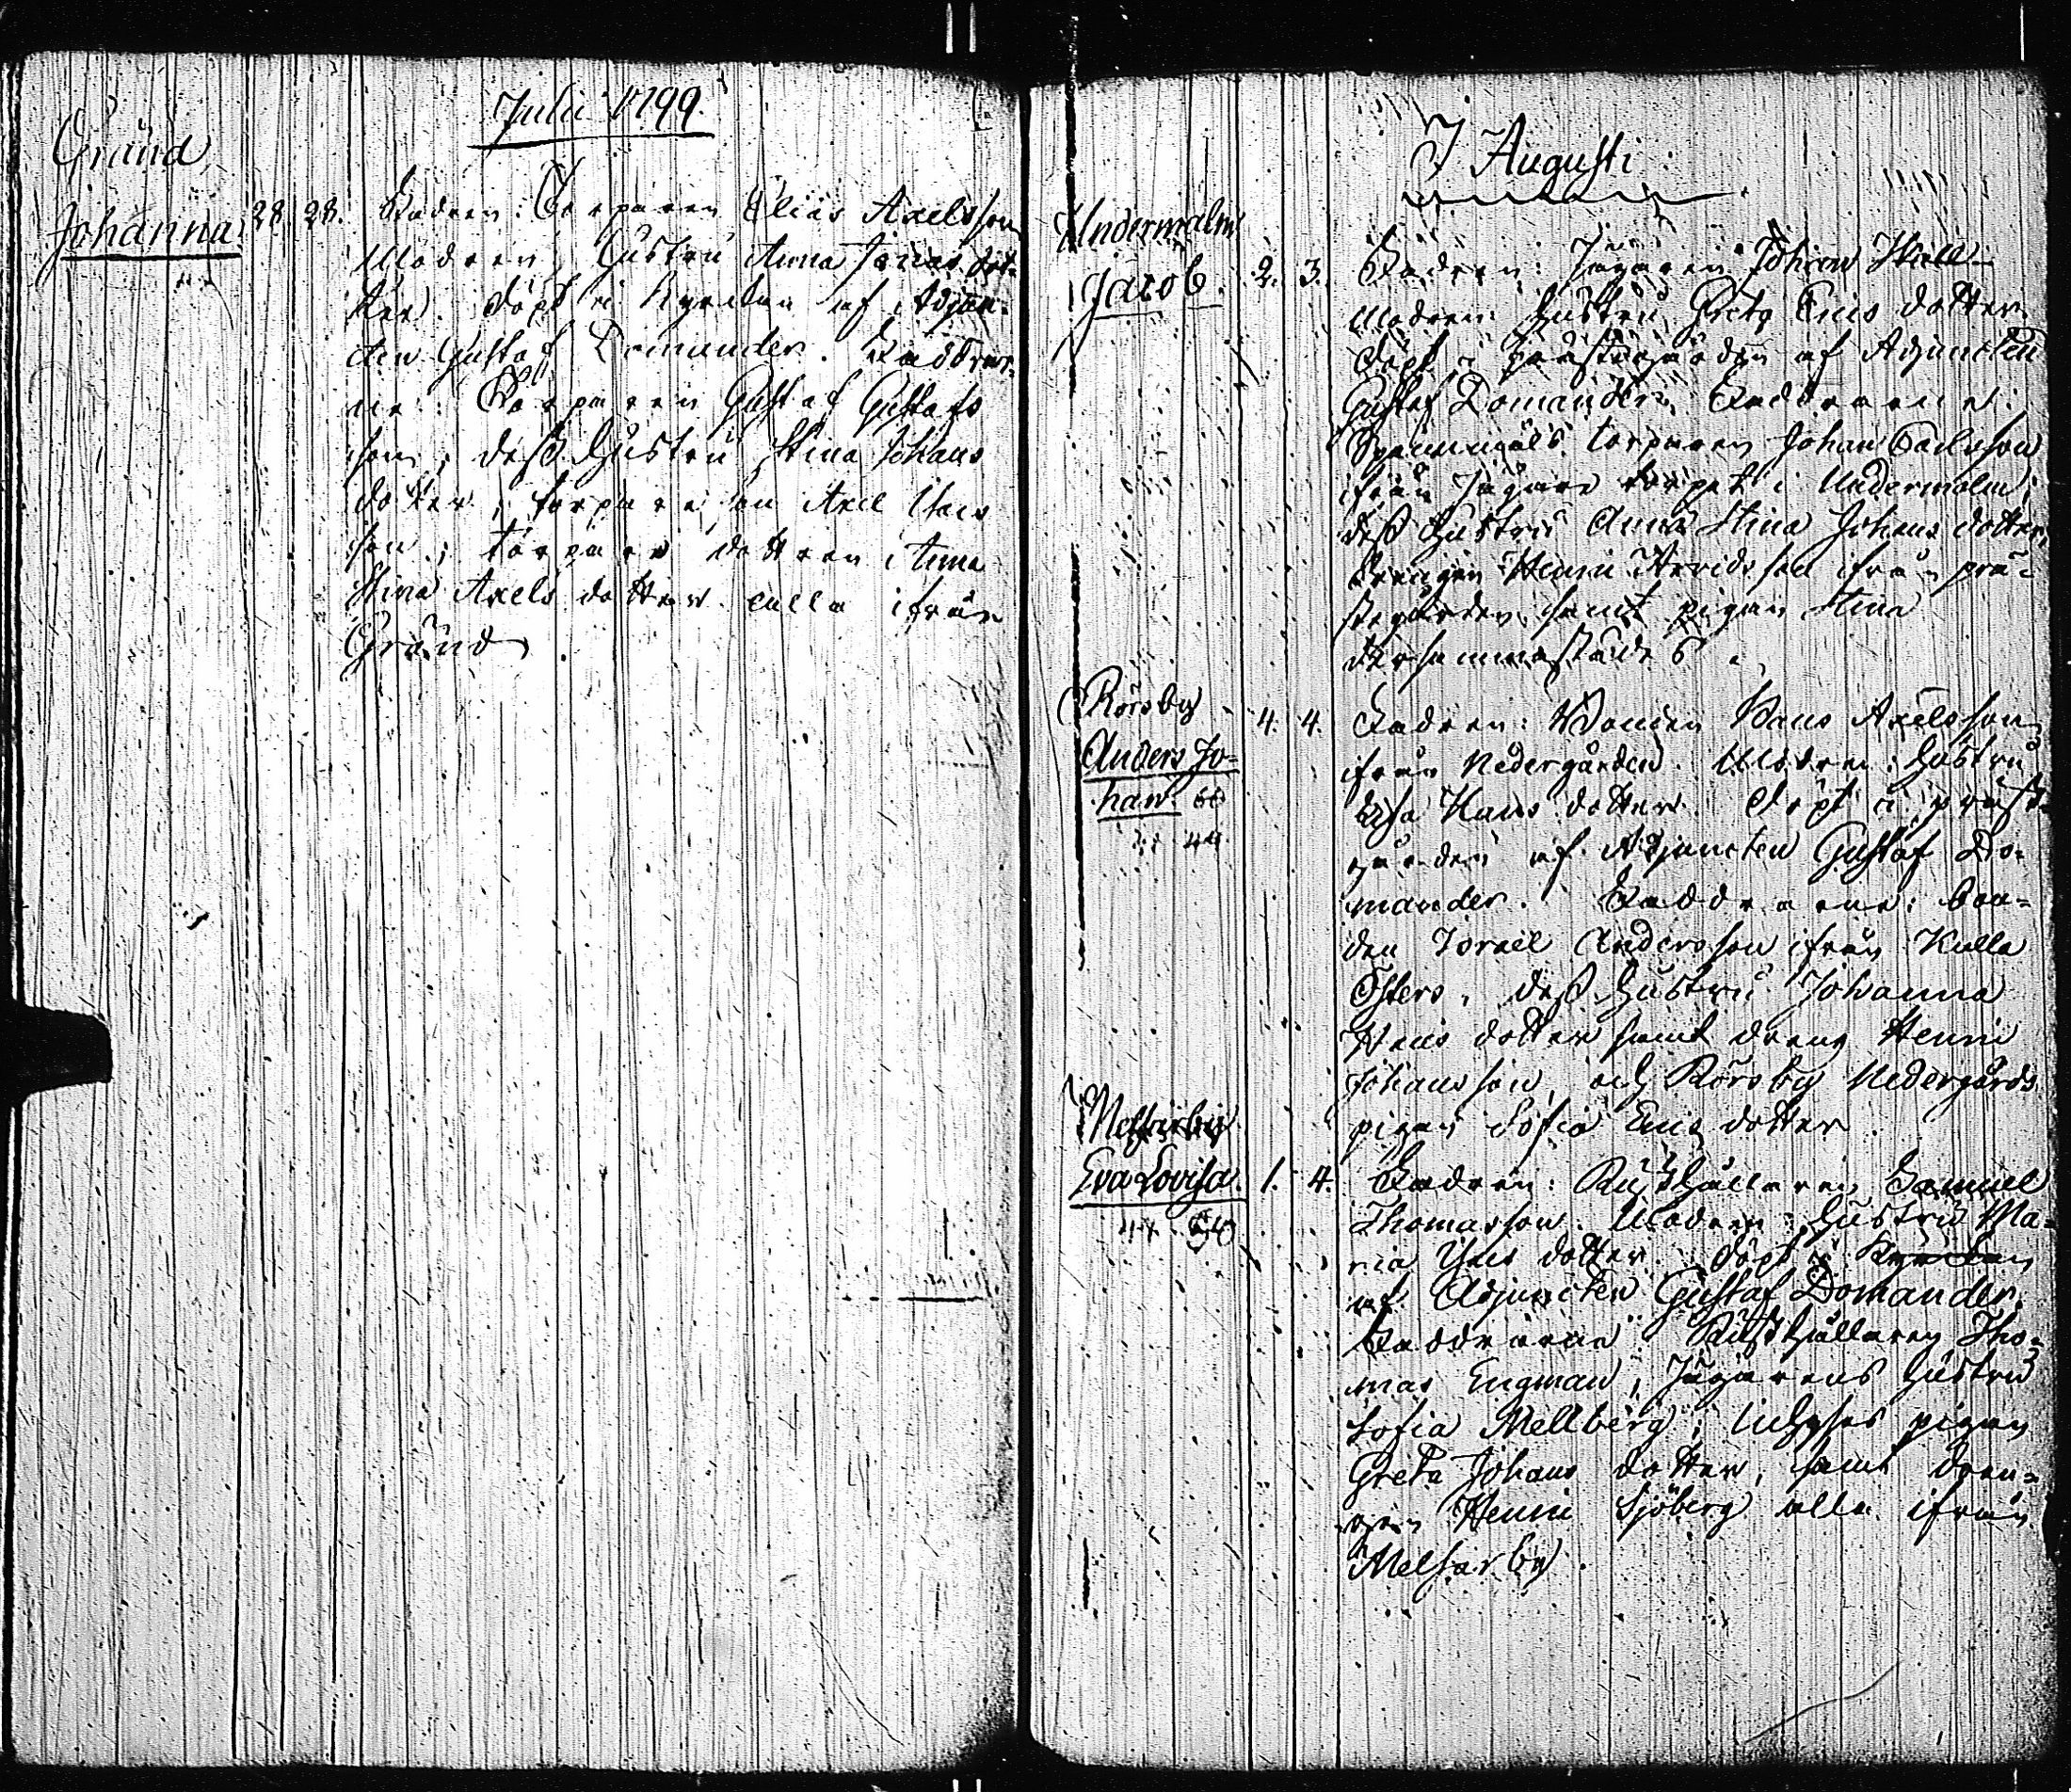 Julii 1799.
Gränd
Johanna. 28. 28. Fadren: Torparen Elias Axelsson
Modren, Hustru Anna Jonas dot-
ter. döpt i Kyrckan af Adjunc-
ten Gustaf Domander. Faddrar-
ne: Torparen Gustaf Gustafs
son, dess Hustru Stina Johans
dotter, torpare son Axel
son; torpare dottren Anna
Stina Axels dotter alla ifrån
Gränd
I Augusti
Undermalm
Jacob. 2. 3. Fadren: Jägaren Johan
Modren: Hustru Greta Eris dotter
döpt i prästegården af Adjuncten
Gustaf Domander. Faddrarne:
torparen Johan Carlsson
ifrån Jägare torpet i Undermalm;
dess Hustru Anna Stina Johans dotter,
drengen Henric Arvidsson ifrån prä-
stegården, samt pigan Stina
dersammastädes.
Rörsby
Anders Jo-
han. 4. 4. Fadren: Bonden Hans Axelsson
ifrån Nedergården. Modren: Hustru
Lisa Hans dotter. döpt i präste-
gården af Adjuncten Gustaf Do-
mander. Faddrarne: bon-
den Israel Andersson ifrån Kulla
Östers, dess Hustru Johanna
Hans dotter samt dreng Henric
Johansson, och Rörsby Nedergårds
pigan Sofia Eris dotter.
Melsarby
Eva Lovisa. 1. 4. Fadren: Rusthållaren Samuel
Thomasson. Modren: Hustru Ma-
ria dotter. döpt i Kyrckan
af Adjuncten Gustaf Domander.
Faddrarne: Rusthållaren Tho-
mas Engman, Jägarens Hustru
Sofia Mellberg; pigan
Greta Johans dotter, samt dren-
gen Henric Sjöberg alla ifrån
Melsarby.